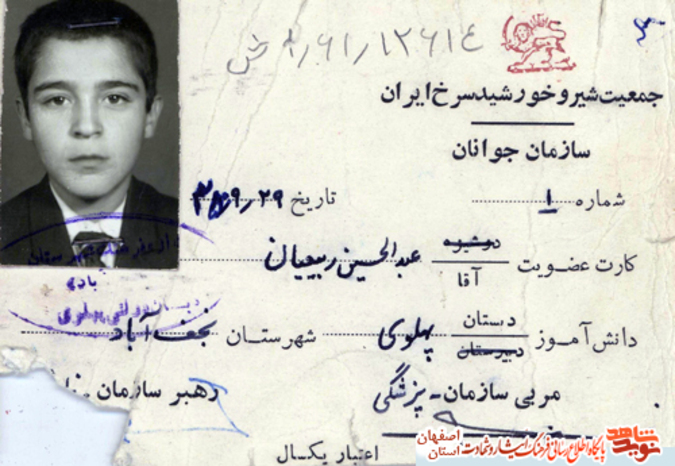 ۸/۶۱/۱۲۶۱۴ ش
جمعیت شیر و خورشید سرخ ایران
سازمان جوانان
شماره ۱ تاریخ
کارت عضویت دوشیزه آقا عبدالحسین ربیعیان
دانش آموز دبستان دبیرستان پهلوی شهرستان نجف آباد
مربی سازمان - پزشگی رهبر سازمان
اعتبار یکسال
نوید شاهد
پایگاه اطلاع رسانی فرهنگ ایثار و شهادت
اصفهان
استان